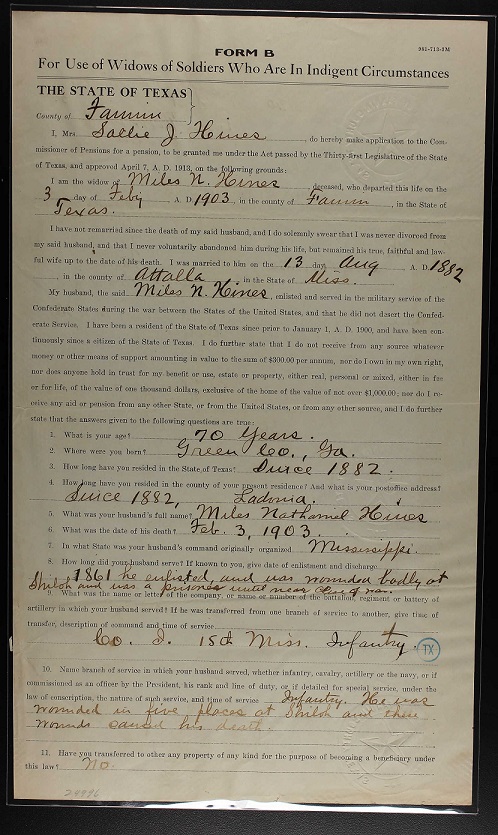 FORM B
981-713-3M
For Use of Widows of Soldiers Who Are In Indigent Circumstances
THE STATE OF TEXAS
County of Fannin
I, Mrs. Sallie J. Hines, do hereby make application to the Com-
missioner of Pensions for a pension, to be granted me under the Act passed by the Thirty-first Legislature of the State
of Texas, and approved April 7, A. D. 1913, on the following grounds:
I am the widow of Miles N. Hines, deceased, who departed this life on the
3 day of Feby A. D. 1903, in the county of Fannin, in the State of
Texas.
I have not remarried since the death of my said husband, and I do solemnly swear that I was never divorced from
my said husband, and that I never voluntarily abandoned him during his life, but remained his true, faithful and law-
ful wife up to the date of his death. I was married to him on the 13 day Aug A. D. 1882
, in the county of Attalla, in the State of Miss.
My husband, the said Miles N. Hines, enlisted and served in the military service of the
Confederate States during the war between the States of the United States, and that he did not desert the Confed-
erate Service. I have been a resident of the State of Texas since prior to January 1, A. D. 1900, and have been con-
tinuously since a citizen of the State of Texas. I do further state that I do not receive from any source whatever
money or other means of support amounting in value to the sum of $300.00 per annum, nor do I own in my own right,
nor does anyone hold in trust for my benefit or use, estate or property, either real, personal or mixed, either in fee
or for life, of the value of one thousand dollars, exclusive of the home of the value of not over $1,000.00; nor do I re-
ceive any aid or pension from any other State, or from the United States, or from any other source, and I do further
state that the answers given to the following questions are true:
1. What is your age? 70 Years.
2. Where were you born? Green Co., Ga.
3. How long have you resided in the State of Texas? Since 1882.
4. How long have you resided in the county of your present residence? And what is your postoffice address?
Since 1882, Ladonia.
5. What was your husband's full name? Miles Nathaniel Hines
6. What was the date of his death? Feb. 3, 1903.
7. In what State was your husband's command originally organized Mississippi.
8. How long did your husband serve? If known to you, give date of enlistment and discharge.
1861 he enlisted, and was wounded badly at
Shiloh and was a prisoner until near close of war.
9. What was the name or letter of the company, or name or number of the battalion, regiment or battery of
artillery in which your husband served? If he was transferred from one branch of service to another, give time of
transfer, description of command and time of service
Co. I. 15th Miss. Infantry.
TX
10. Name branch of service in which your husband served, whether infantry, cavalry, artillery or the navy, or if
commissioned as an officer by the President, his rank and line of duty, or if detailed for special service, under the
law of conscription, the nature of such service, and time of service Infantry. He was
wounded in five places at Shiloh and these
wounds caused his death.
11. Have you transferred to other any property of any kind for the purpose of becoming a beneficiary under
this law? No.